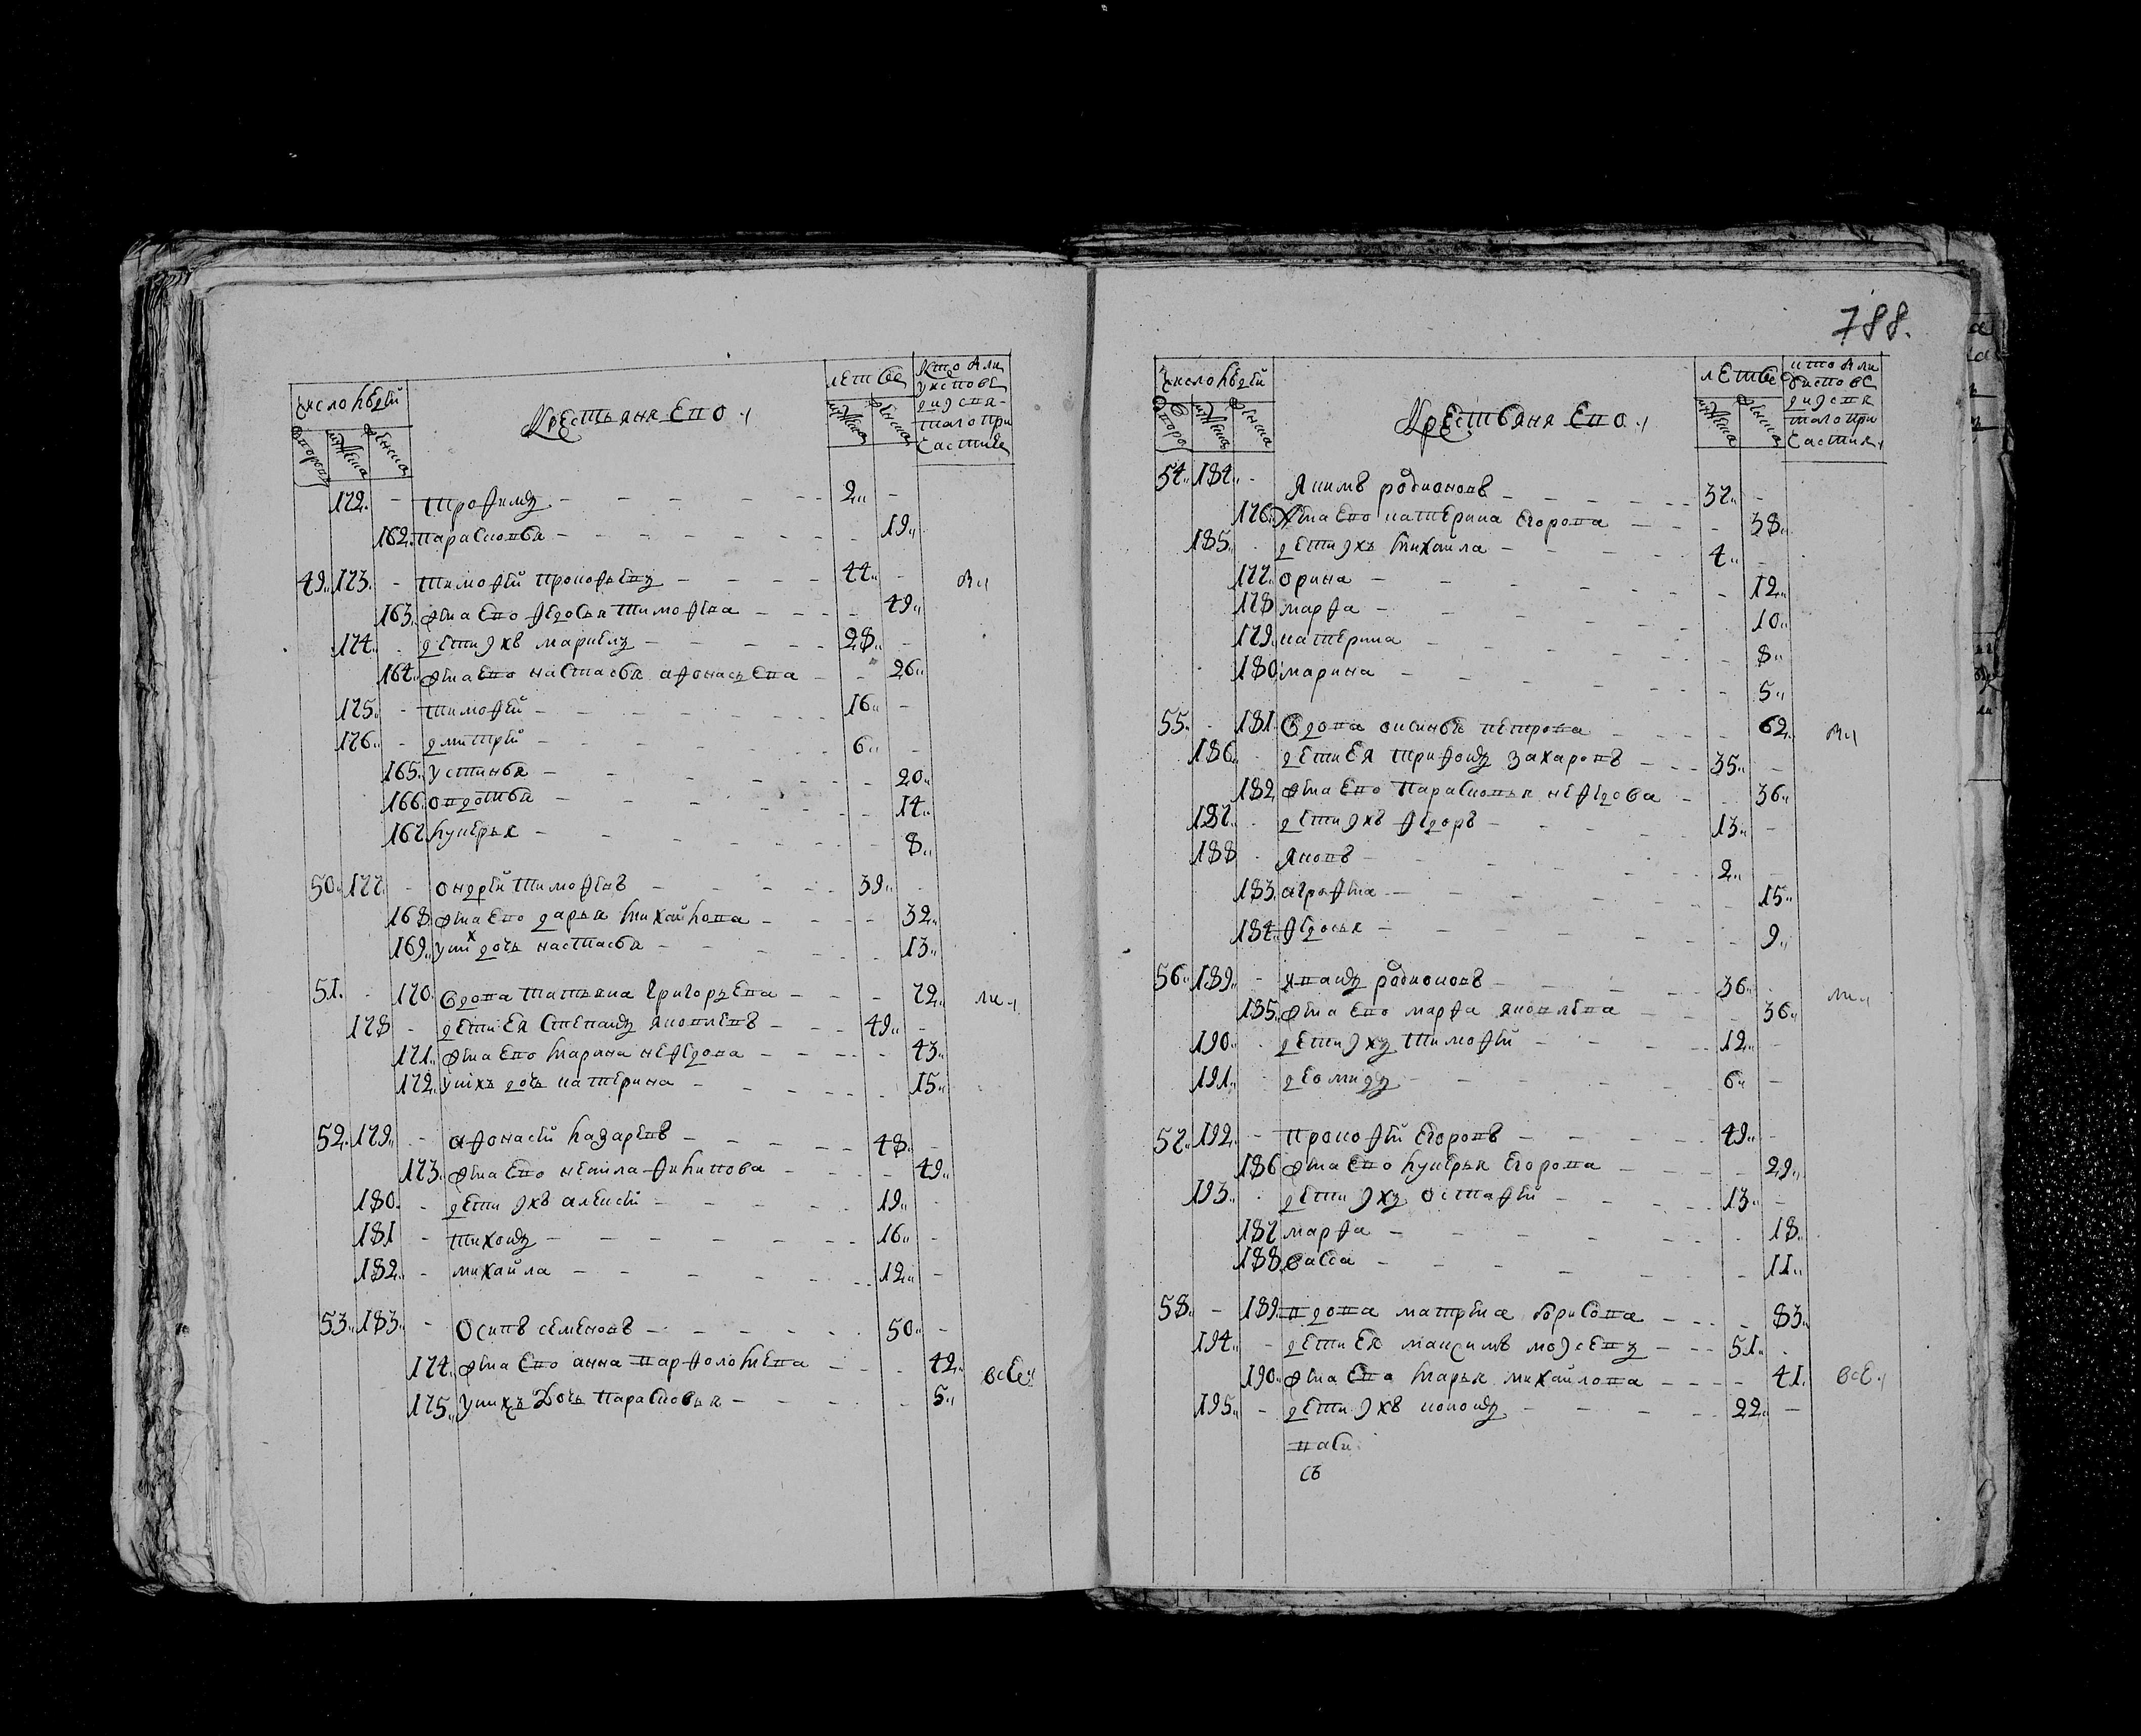 788.
число людей
Крестьяня Ево
летъ
двороꙵ
мужеска
женска
172. Трофимъ 2
162. парасковья 19
49. 173. тимофей прокофьевъ 44
163. жена Ево федосья тимофева 49
174. дети Ихъ маркелъ 28
164. жена Ево настасья афонасьева 26
175. тимофей 16
176. дмитрей 6
165. устинья 20
166. овдотья 14
167. лукерья 8
50. 177. ондрей тимофевъ 39
168. жена Ево дарья михайлова 32
169. у них дочь настасья 13
51. 170. вдова татьяна григорьева 72
178 дети Ея степанъ яковлевъ 49
171. жена Ево марина нефедова 43
172. у нихъ дочь катерина 15
52. 179. афонасей лазаревъ 48
173. жена Ево неонила филипова 49
180. дети Ихъ алексей 19
181 тихонъ 16
182. михайла 12
53. 183. осипъ семеновъ 50
174. жена Ево анна варфоломеева 42
175. у нихъ дочь парасковья 5
все
число людей
Крестьяня Ево
летъ
мужеска
женска
54. 184. якимъ родионовъ 37
176. жена Ево катерина Егорова 38
185. дети Ихъ михаила 4
177. орина 12
178 марфа 10
179. катерина 8
180 марина 5
55. 181. вдова аксинья петрова 62
186. дети Ея трифонъ захаровъ 35
182 жена Ево парасковья нефедова 36
187. дети Ихъ федоръ 13
188 яковъ 2
183. агрофена 15
184. федосья 9
56. 189. иванъ родионовъ 36
185. жена Ево марфа яковлева 36
190. дети Ихъ тимофей 12
191. деомидъ 6
57. 192. прокофей Егоровъ 49
186 жена Ево лукерья Егорова 29
193. дети Ихъ остафей 13
187 марфа 18
188. васса 11
58. 189. вдова матрена борисова 83
194. дети Ея максимъ моисевъ 51
190. жена Ево марья михайлова 41
все
195. дети Ихъ кононъ 22
васи
съ